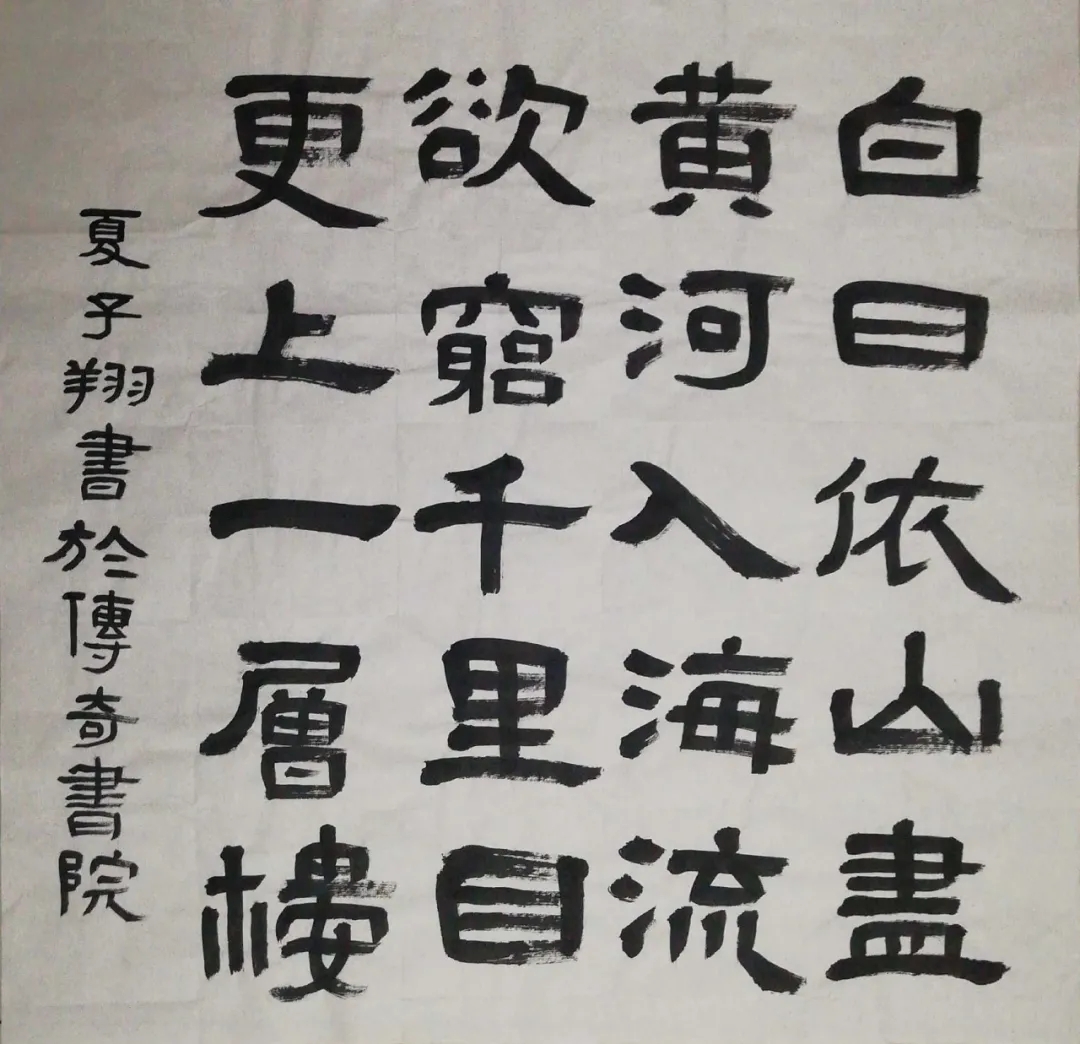 白日依山盡
黄河入海流
欲窮千里目
更上一層樓
夏子翔書於傳奇書院